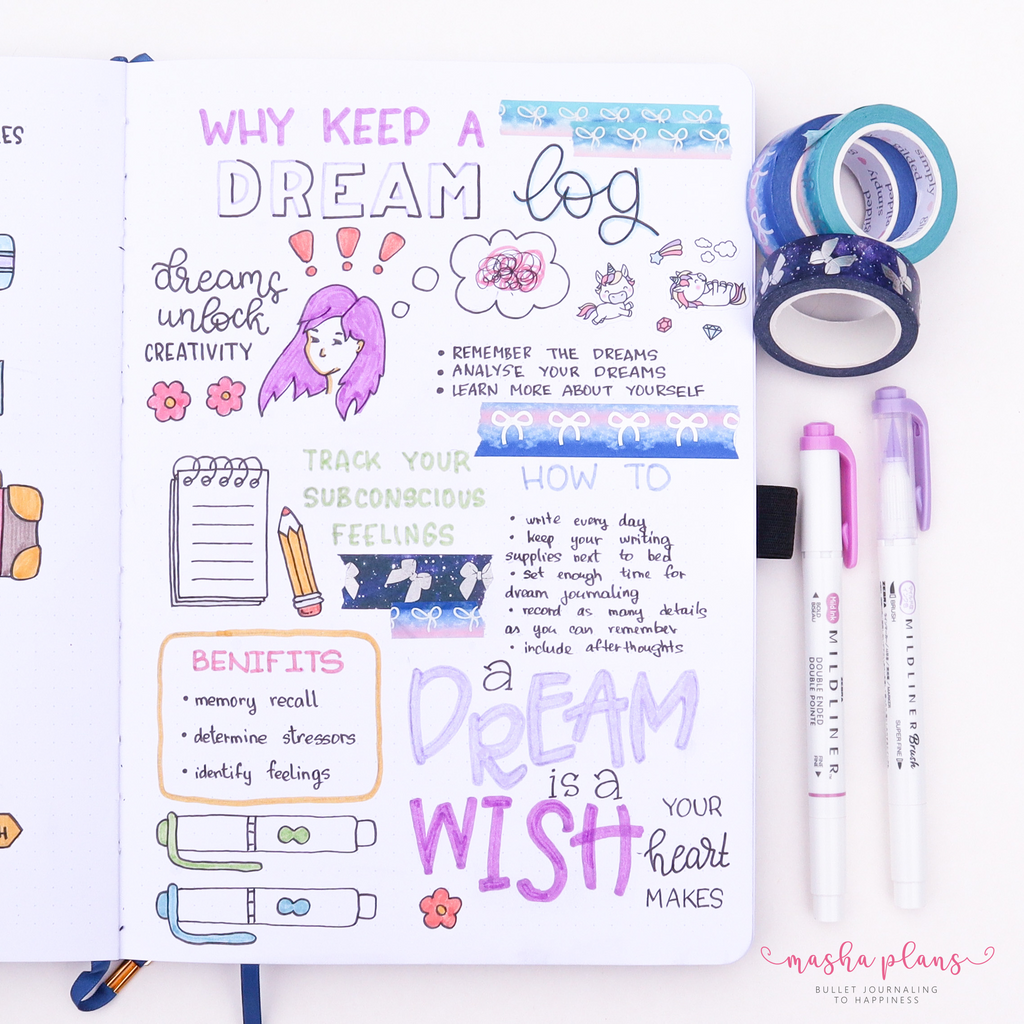 WHY KEEP A
DREAM log
dreams
unlock
CREATIVITY
• REMEMBER THE DREAMS
• ANALYSE YOUR DREAMS
• LEARN MORE ABOUT YOURSELF
TRACK YOUR
SUBCONSCIOUS
FEELINGS
HOW TO
• write every day
• keep your writing
supplies next to bed
• set enough time for
dream journaling
• record as many details
as you can remember
• include afterthoughts
BENIFITS
• memory recall
• determine stressors
• identify feelings
a
DREAM
is a
WISH
YOUR
heart
MAKES
simply
gilded
simply
MILDLINER
DOUBLE ENDED
DOUBLE POINTE
BOLD
FINE
MILDLINER Brush
BRUSH
SUPER FINE
masha plans
BULLET JOURNALING
TO HAPPINESS